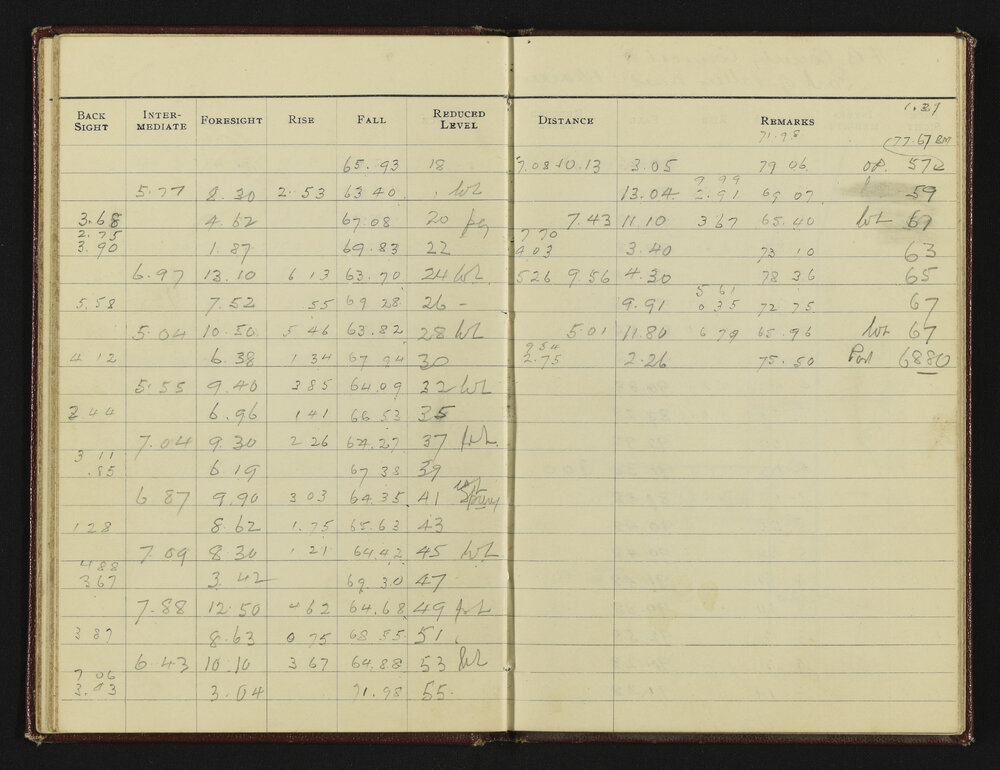 BACK SIGHT INTER-MEDIATE FORESIGHT RISE FALL REDUCED LEVEL
65.93 18
5.77 8.30 2.53 63.40
3.68 4.62 67.08 20 peg
2.75
3.90 1.87 69.83 22
6.97 13.10 6 13 63.70 24
5.58 7.52 .55 69 28 26 -
5.04 10.50 5 46 63.82 28
4 12 6.38 1 34 67 94 30
5.55 9.40 3 85 64.09 32
2 44 6.96 1 41 66 53 35
7.04 9.30 2 26 64.27 37
3 11
.85 6.19 67 38 39
6.87 9.90 3 03 64.35 41
1 28 8.62 1.75 65.63 43
7.09 8.30 1 21 64.42 45
4 88
3 67 3.42 69.30 47
7.88 12.50 62 64.68 49
3 87 8.63 0 75 68 55 51
6 43 10.10 3 67 64.88 53
7 06
3.03 3.04 71.98 55
1.37
DISTANCE REMARKS
71.98 77.67 BM
7.08 10.13 3.05 79 06 572
9 99
13.04 2.91 69 07 59
7.43 11.10 3 67 65.40 61
7 70
9.03 3.40 73 10 63
526 9.56 4.30 78 36 65
5 61
9.91 0 35 72 75 67
5 01 11.80 6 79 65.96 67
9.54
2.75 2.26 75.50 6880